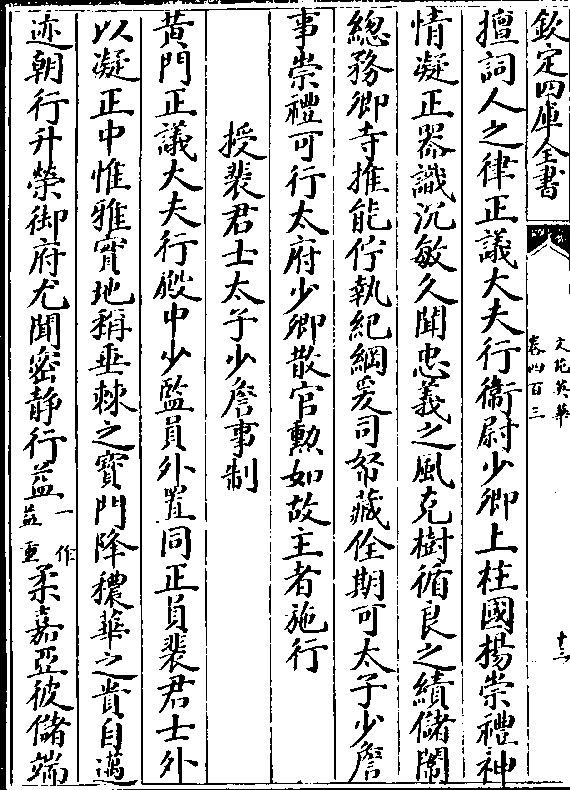 欽定四庫全書
文苑英華
卷四百三
十三
擅詞人之律正議大夫行衞尉少卿上柱國楊崇禮神
情凝正器識沉敏久聞忠義之風克樹循良之績儲闈
總務卿寺推能佇執紀綱爰司帑藏佺期可太子少詹
事崇禮可行太府少卿散官勲如故主者施行
授裴君士太子少詹事制
黄門正議大夫行殿中少監員外置同正員裴君士外
以凝正中惟雅實地稱垂棘之寳門降穠華之貴自邁
迹朝行升榮御府尤聞密静行益一作益重柔嘉亞彼儲端